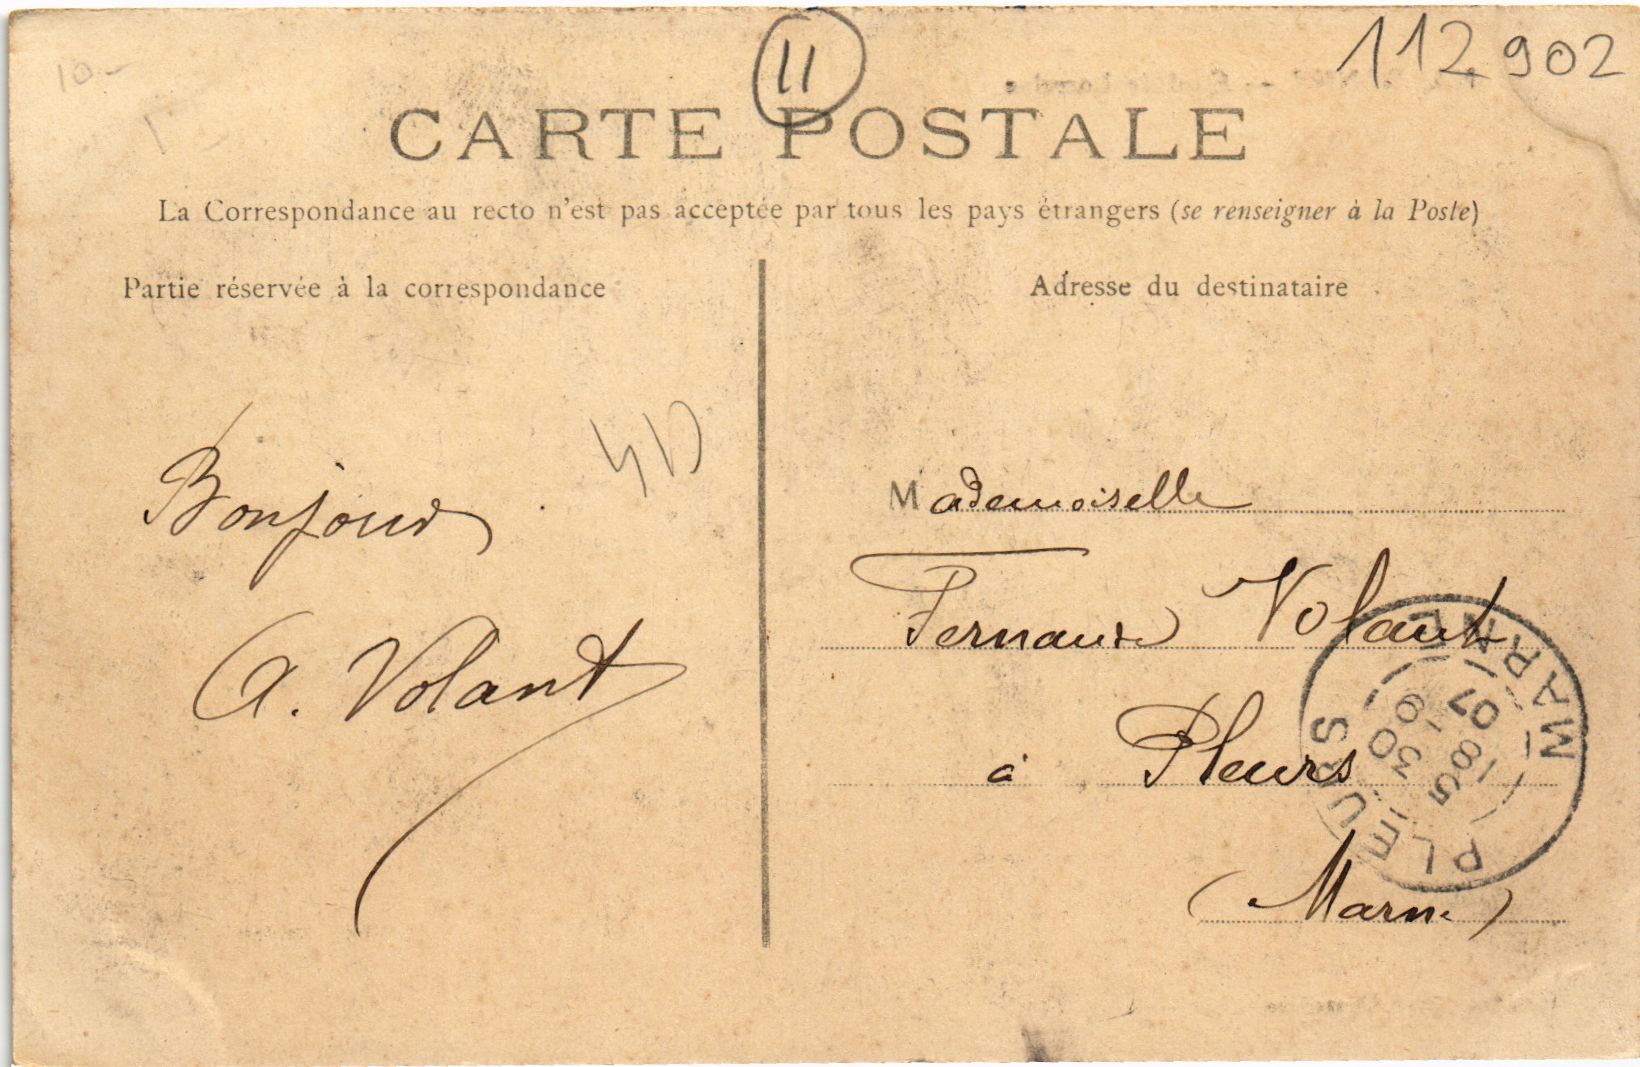 10.-
11
112902
CARTE POSTALE
La Correspondance au recto n'est pas acceptée par tous les pays étrangers (se renseigner à la Poste)
Partie réservée à la correspondance
Adresse du destinataire
Bonjour
A. Volant
Mademoiselle
Fernande Volant
à Pleurs
(Marne)
PLEURS
MARNE
6 30
18 5
07